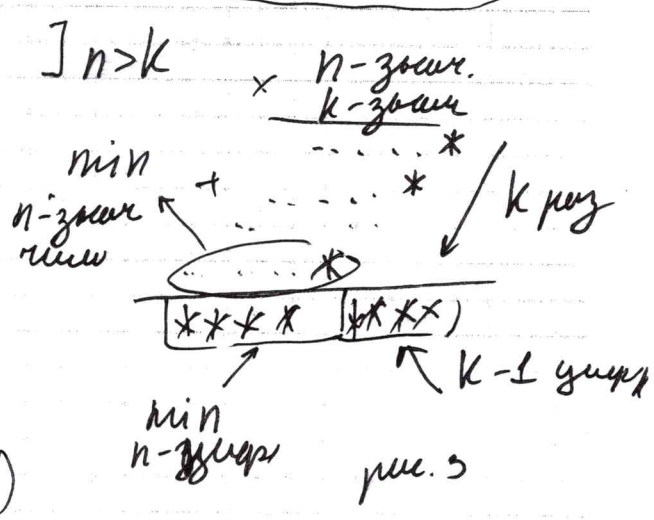 ] n>k
× n-знач.
k-знач
.....*
+ .....*
.....
.....*
k раз
min
n-знач
число
**** ****
k-1 цифр
min
n-цифр
рис. 3